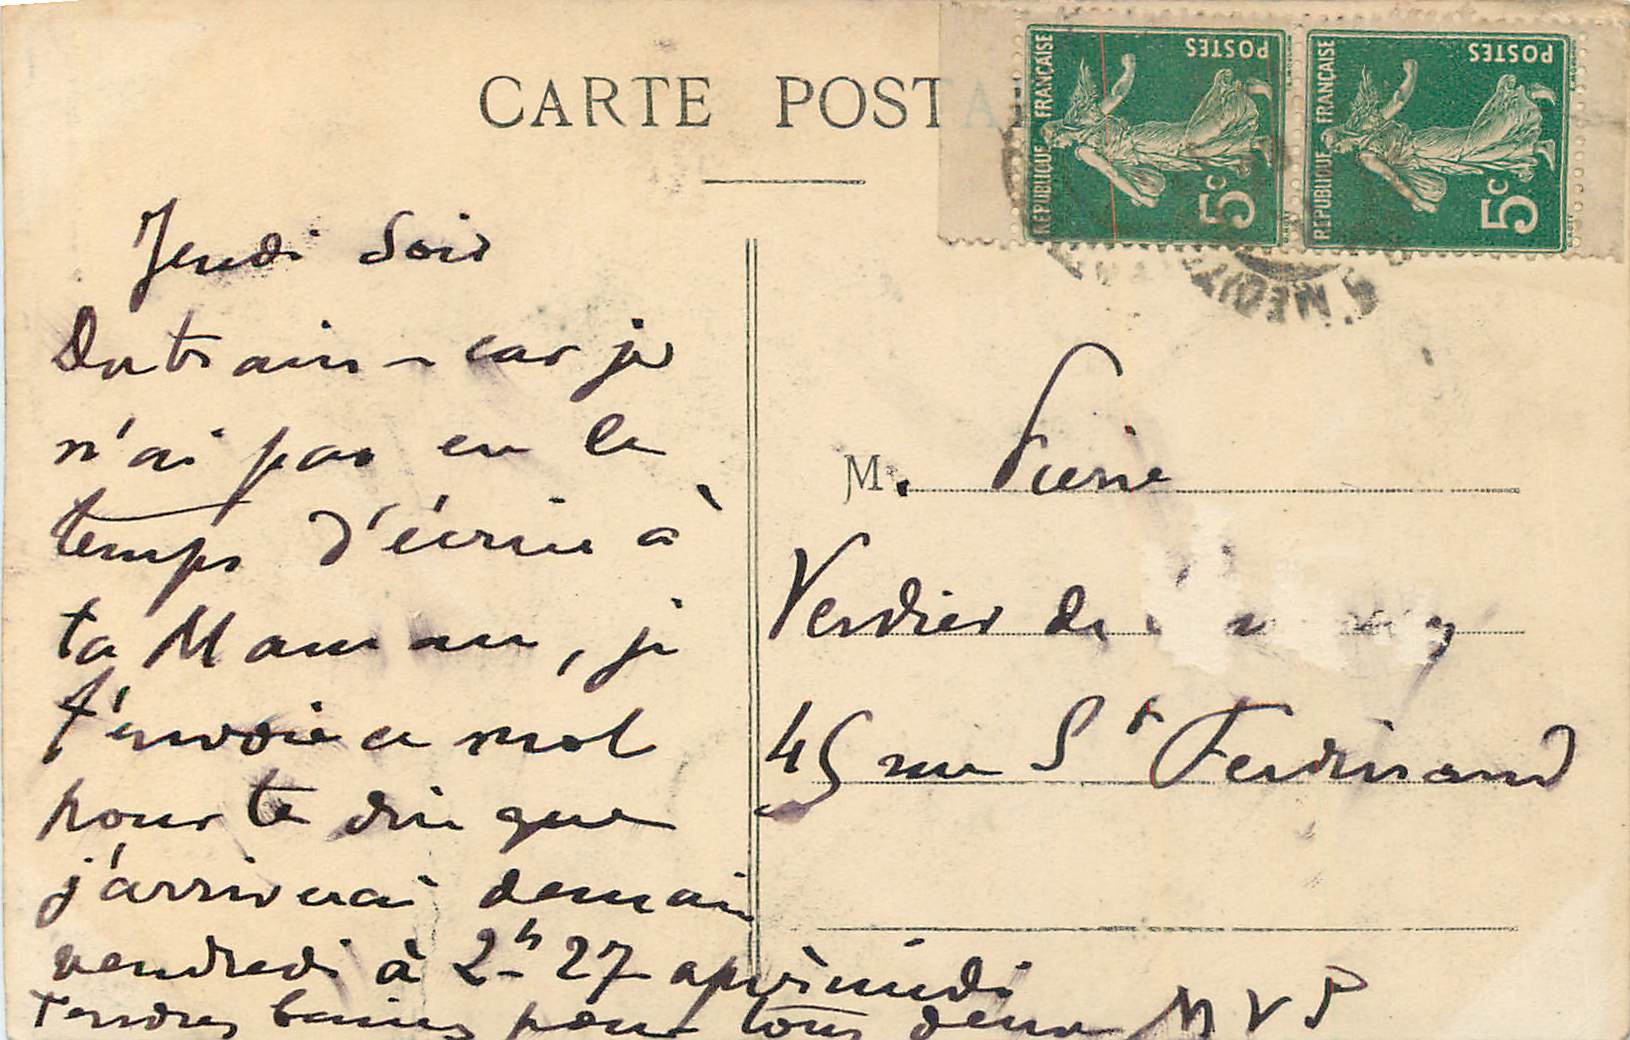 CARTE POSTA
REPUBLIQUE FRANÇAISE
POSTES
5c
REPUBLIQUE FRANÇAISE
POSTES
5c
Jeudi Soir
Du train - car je
n'ai pas eu le
temps d'écrire à
ta Maman, je
t'envoie ce mot
pour te dire que
j'arriverai demain
vendredi à 2h 27 aprèsmidi
Tendres baisers pour tous deux MVP
M. Pierre
Verdier de
45 rue St Ferdinand